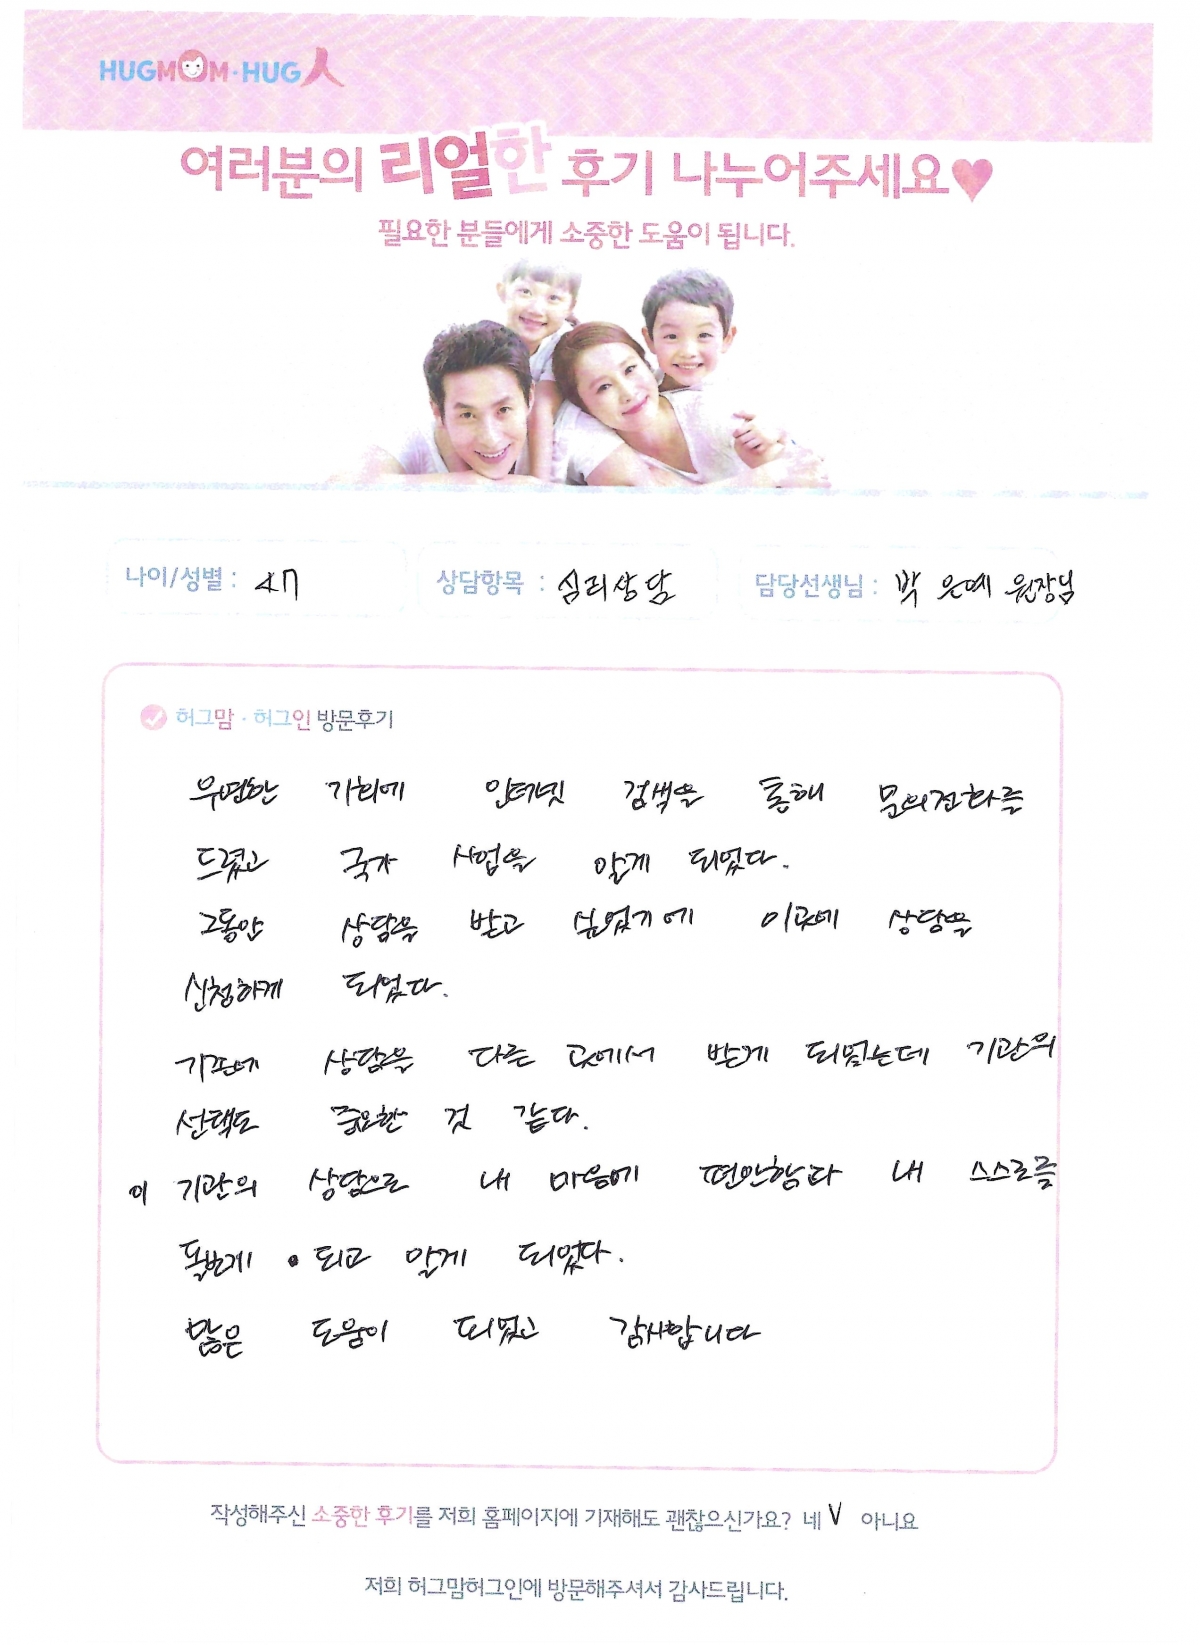 HUGMOM·HUG人
여러분의 리얼한 후기 나누어주세요♥
필요한 분들에게 소중한 도움이 됩니다.
나이/성별 : 47 상담항목 : 심리상담 담당선생님 : 박은예 원장님
허그맘·허그인 방문후기
우연한 기회에 인터넷 검색을 통해 문의전화를
드렸고 국가 사업을 알게 되었다.
그동안 상담을 받고 싶었기에 이곳에 상담을
신청하게 되었다.
기존에 상담을 다른 곳에서 받게 되었는데 기관의
선택도 중요한 것 같다.
이 기관의 상담으로 내 마음에 편안함과 내 스스로를
돌보게 되고 알게 되었다.
많은 도움이 되었고 감사합니다
작성해주신 소중한 후기를 저희 홈페이지에 기재해도 괜찮으신가요? 네 V 아니요
저희 허그맘허그인에 방문해주셔서 감사드립니다.